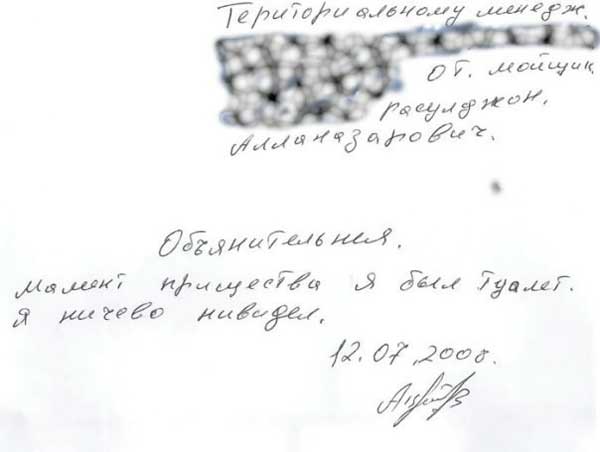 Териториальному менедж.
от. мойщик
расулджон.
Алланазарович.
Обьянительная.
мамент прищества я был туалет.
я ничево нивидел.
12.07,2008.